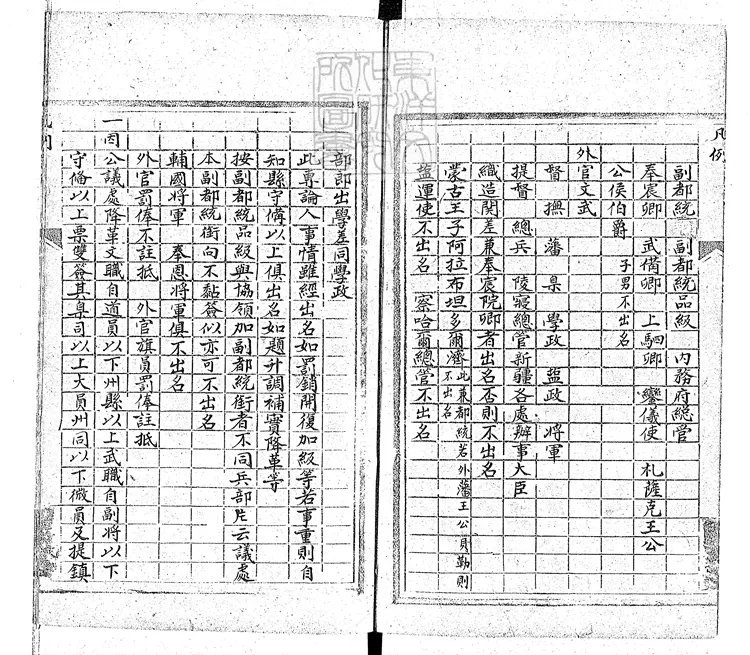 凡例
副都統 副都統品級 內務府總管
奉宸卿 武備卿 上駟卿 鑾儀使 札薩克王公
公侯伯爵 子男不出名
外官文武
督 撫 藩 臬 學政 盐政 將軍
提督 總兵 陵寢總管新疆各處辦事大臣
織造関差兼奉宸院卿者出名否則不出名
蒙古王子阿拉布坦多爾濟 此兼都統若外藩王公貝勒則不出名
盐運使不出名 察哈爾總管不出名
部郎出學差同學政
此專論人事情雖經出名如罰銷開復加級等若事重則自
知縣守備以上俱出名如題升調補實降革等
按副都統品級與協領加副都統銜者不同兵部片云議處
本副都統銜向不黏簽似亦可不出名
輔國將軍 奉恩將軍俱不出名
外官罰俸不註抵 外官旗員罰俸註抵
一因公議處降革文職自道員以下州縣以上武職自副將以下
守僃以上票雙簽其臬司以上大員州同以下微員及提鎮